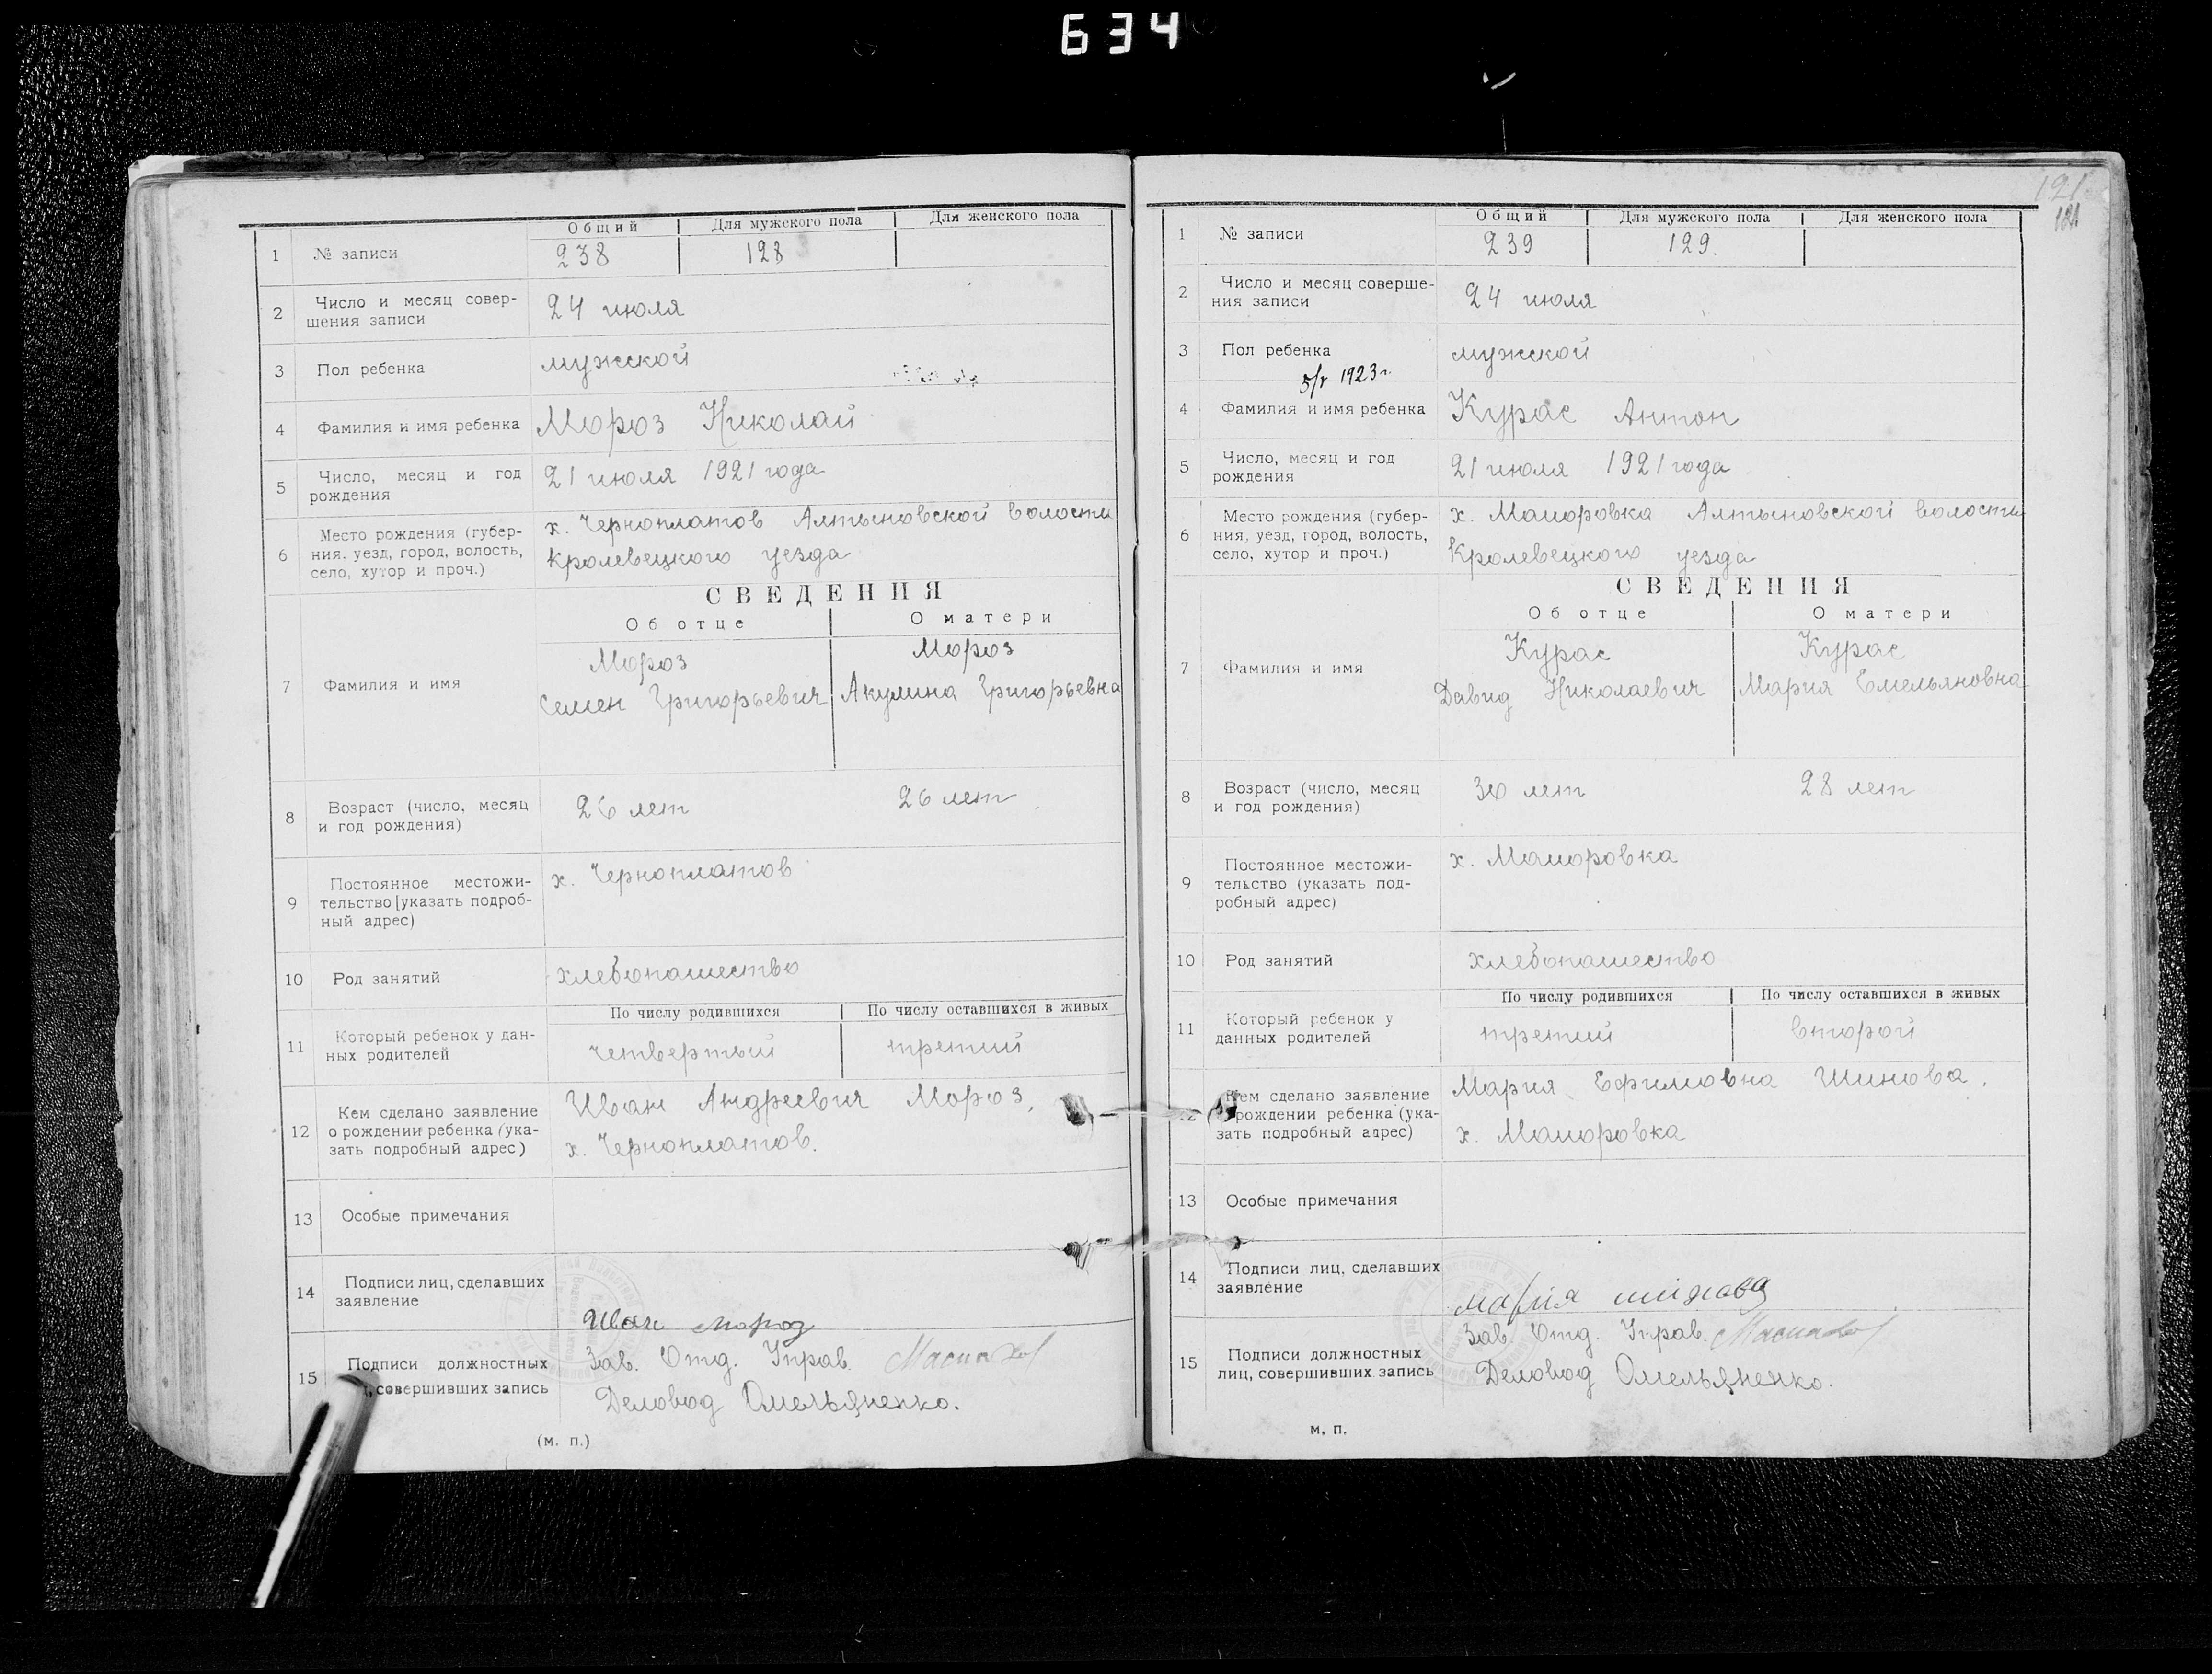 634
Общий Для мужского пола Для женского пола
1 № записи 238 128
2 Число и месяц совер-
шения записи 24 июля
3 Пол ребенка мужской
4 Фамилия и имя ребенка Мороз Николай
5 Число, месяц и год
рождения 21 июля 1921 года
6 Место рождения (губер-
ния, уезд, город, волость,
село, хутор и проч.)
х. Черноплатов Алтыновской волости
Кролевецкого уезда
СВЕДЕНИЯ
Об отце О матери
7 Фамилия и имя
Мороз Мороз
Семен Григорьевич Акулина Григорьевна
8 Возраст (число, месяц
и год рождения) 26 лет 26 лет
9 Постоянное местожи-
тельство [указать подроб-
ный адрес)
х. Черноплатов
10 Род занятий хлебопашество
По числу родившихся По числу оставшихся в живых
11 Который ребенок у дан-
ных родителей четвертый третий
12 Кем сделано заявление
о рождении ребенка (ука-
зать подробный адрес)
Иван Андреевич Мороз,
х. Черноплатов.
13 Особые примечания
14 Подписи лиц, сделавших
заявление
Иван мороз
15 Подписи должностных
, совершивших запись
Зав. Отд. Управ.
Деловод Омельяненко.
(м. п.)
121
121
Общий Для мужского пола Для женского пола
1 № записи 239 129.
2 Число и месяц соверше-
ния записи 24 июля
3 Пол ребенка мужской
1923 г.
4 Фамилия и имя ребенка Курас Антон
5 Число, месяц и год
рождения 21 июля 1921 года
6 Место рождения (губер-
ния, уезд, город, волость,
село, хутор и проч.)
х. Маиоровка Алтыновской волости
Кролевецкого уезда
СВЕДЕНИЯ
Об отце О матери
7 Фамилия и имя
Курас Курас
Давид Николаевич Мария Емельяновна
8 Возраст (число, месяц
и год рождения) 30 лет 28 лет
9 Постоянное местожи-
тельство (указать под-
робный адрес)
х. Маиоровка
10 Род занятий хлебопашество
По числу родившихся По числу оставшихся в живых
11 Который ребенок у
данных родителей третий второй
12 Кем сделано заявление
рождении ребенка (ука-
зать подробный адрес)
Мария Ефимовна Шинова,
х. Маиоровка
13 Особые примечания
14 Подписи лиц, сделавших
заявление
марія шінова
15 Подписи должностных
лиц, совершивших запись
Зав. Отд. Управ.
Деловод Омельяненко.
м. п.